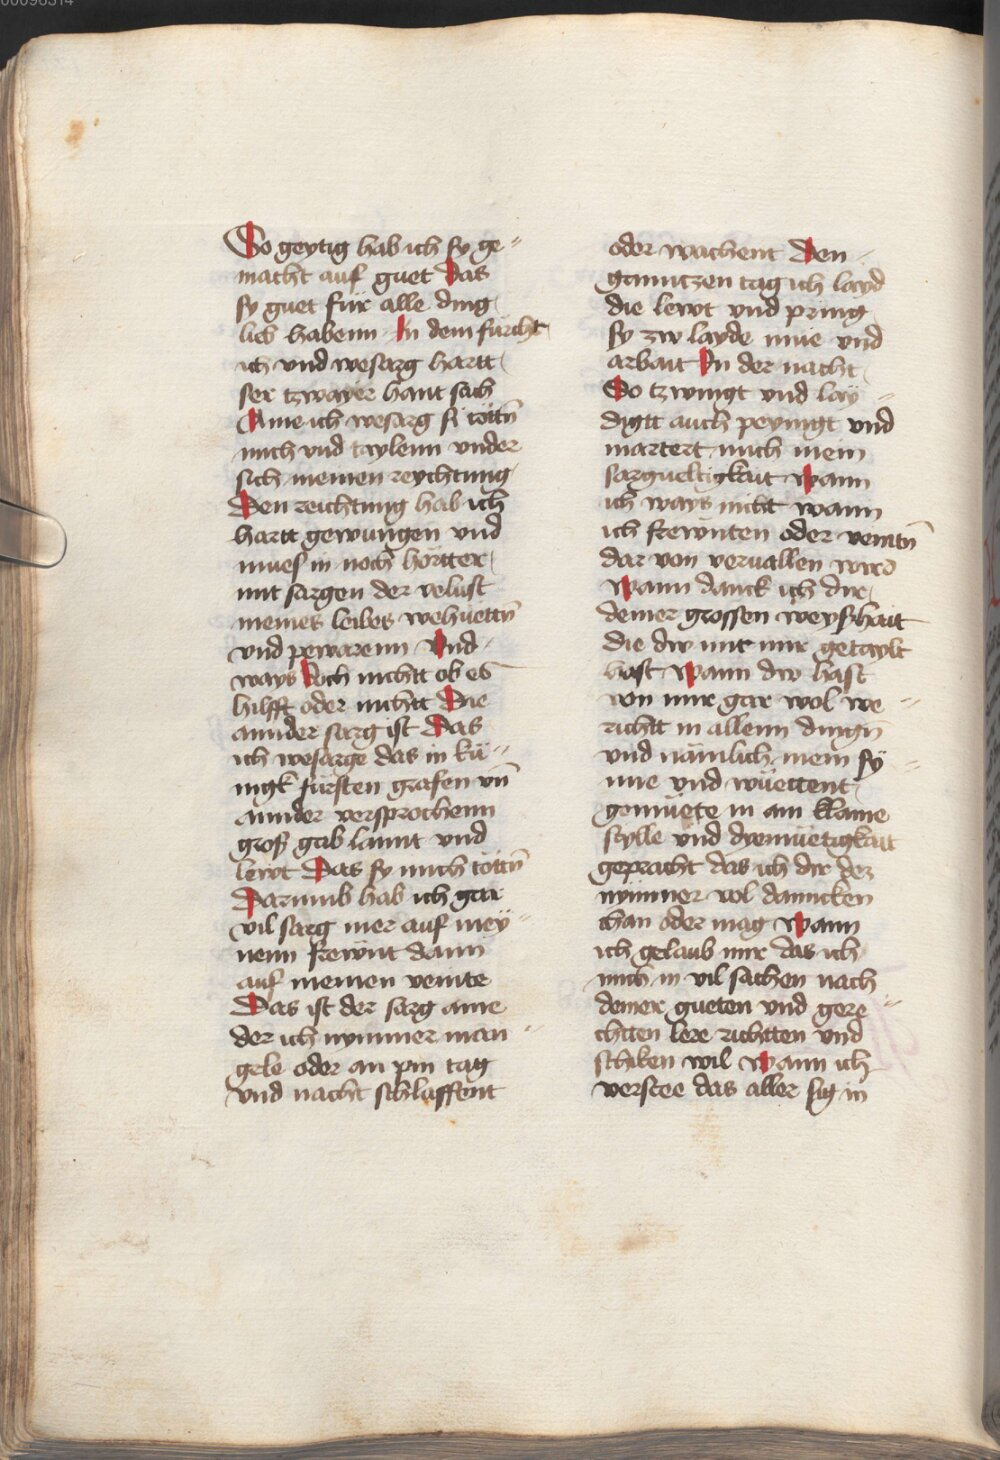 00096314
So geytig hab ich sy ge"
macht auf guet Das
sy guet für alle ding
lieb habenn In dem fürcht
ich und wesarg hartt
ser tzwayer hant sach
Aine ich wesarg si töttn̄
mich vnd taylenn vnder
sich meinen reychtung
Den reichtung hab ich
hartt gewungen vnd
mues in noch hörtter
mit sargen der velust
meines leibes wehüettn̄
vnd pewarenn Vnd
ways Doch nichtt ob es
hilfft oder nichtt Die
annder sarg ist Das
ich wesarge das in kü"
nigk fürsten grafen vn̄
annder versprochenn
groß gab lannt vnd
lewt Das sy mich töttn̄
Darumb hab ich gar
vil sarg mer auf mey"
nenn frewnt dann
auf meinen veinte
Das ist der sarg aine
der ich nymmer man"
gele oder an pin tag
vnd nacht schlaffent
oder wachent Den
ganntzen tag ich layd
die lewt vnd pring
sy zw layde mue vnd
arbait In der nacht
So tzwingt vnd lay"
digtt auch peynigt vnd
martert mich mein
sargueltigkait Wann
ich ways nicht wann
ich frewnten oder veintn̄
dar von vervallen wird
Wann danck ich dir
deiner grossen weyshait
die dw mit mir getaylt
hast Wann dw hast
von mir gar wol we"
richtt in allenn dingn̄
vnd nämlich mein sy"
nne vnd wüettent
gemüete in ain klaine
stylle vnd diemüetigkait
gepracht das ich dir dez
nymmer vol dancken
chan oder mag Wann
ich gelaub mir das ich
mich in vil sachen nach
deiner gueten vnd gere"
chtten lere richtten vnd
schiken wil Wann ich
verstee das aller sig in